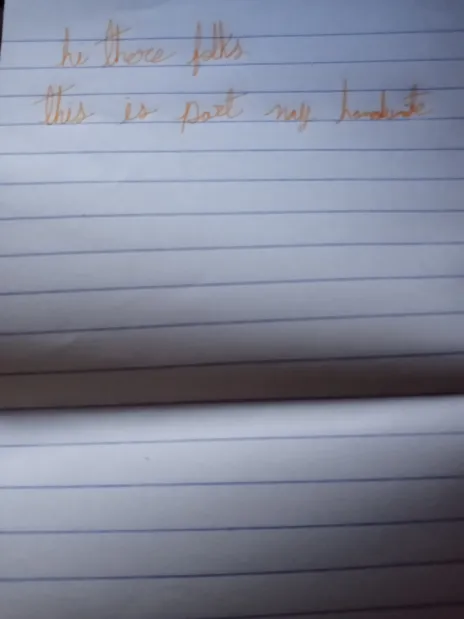 hi there folks
this is part my handwrite